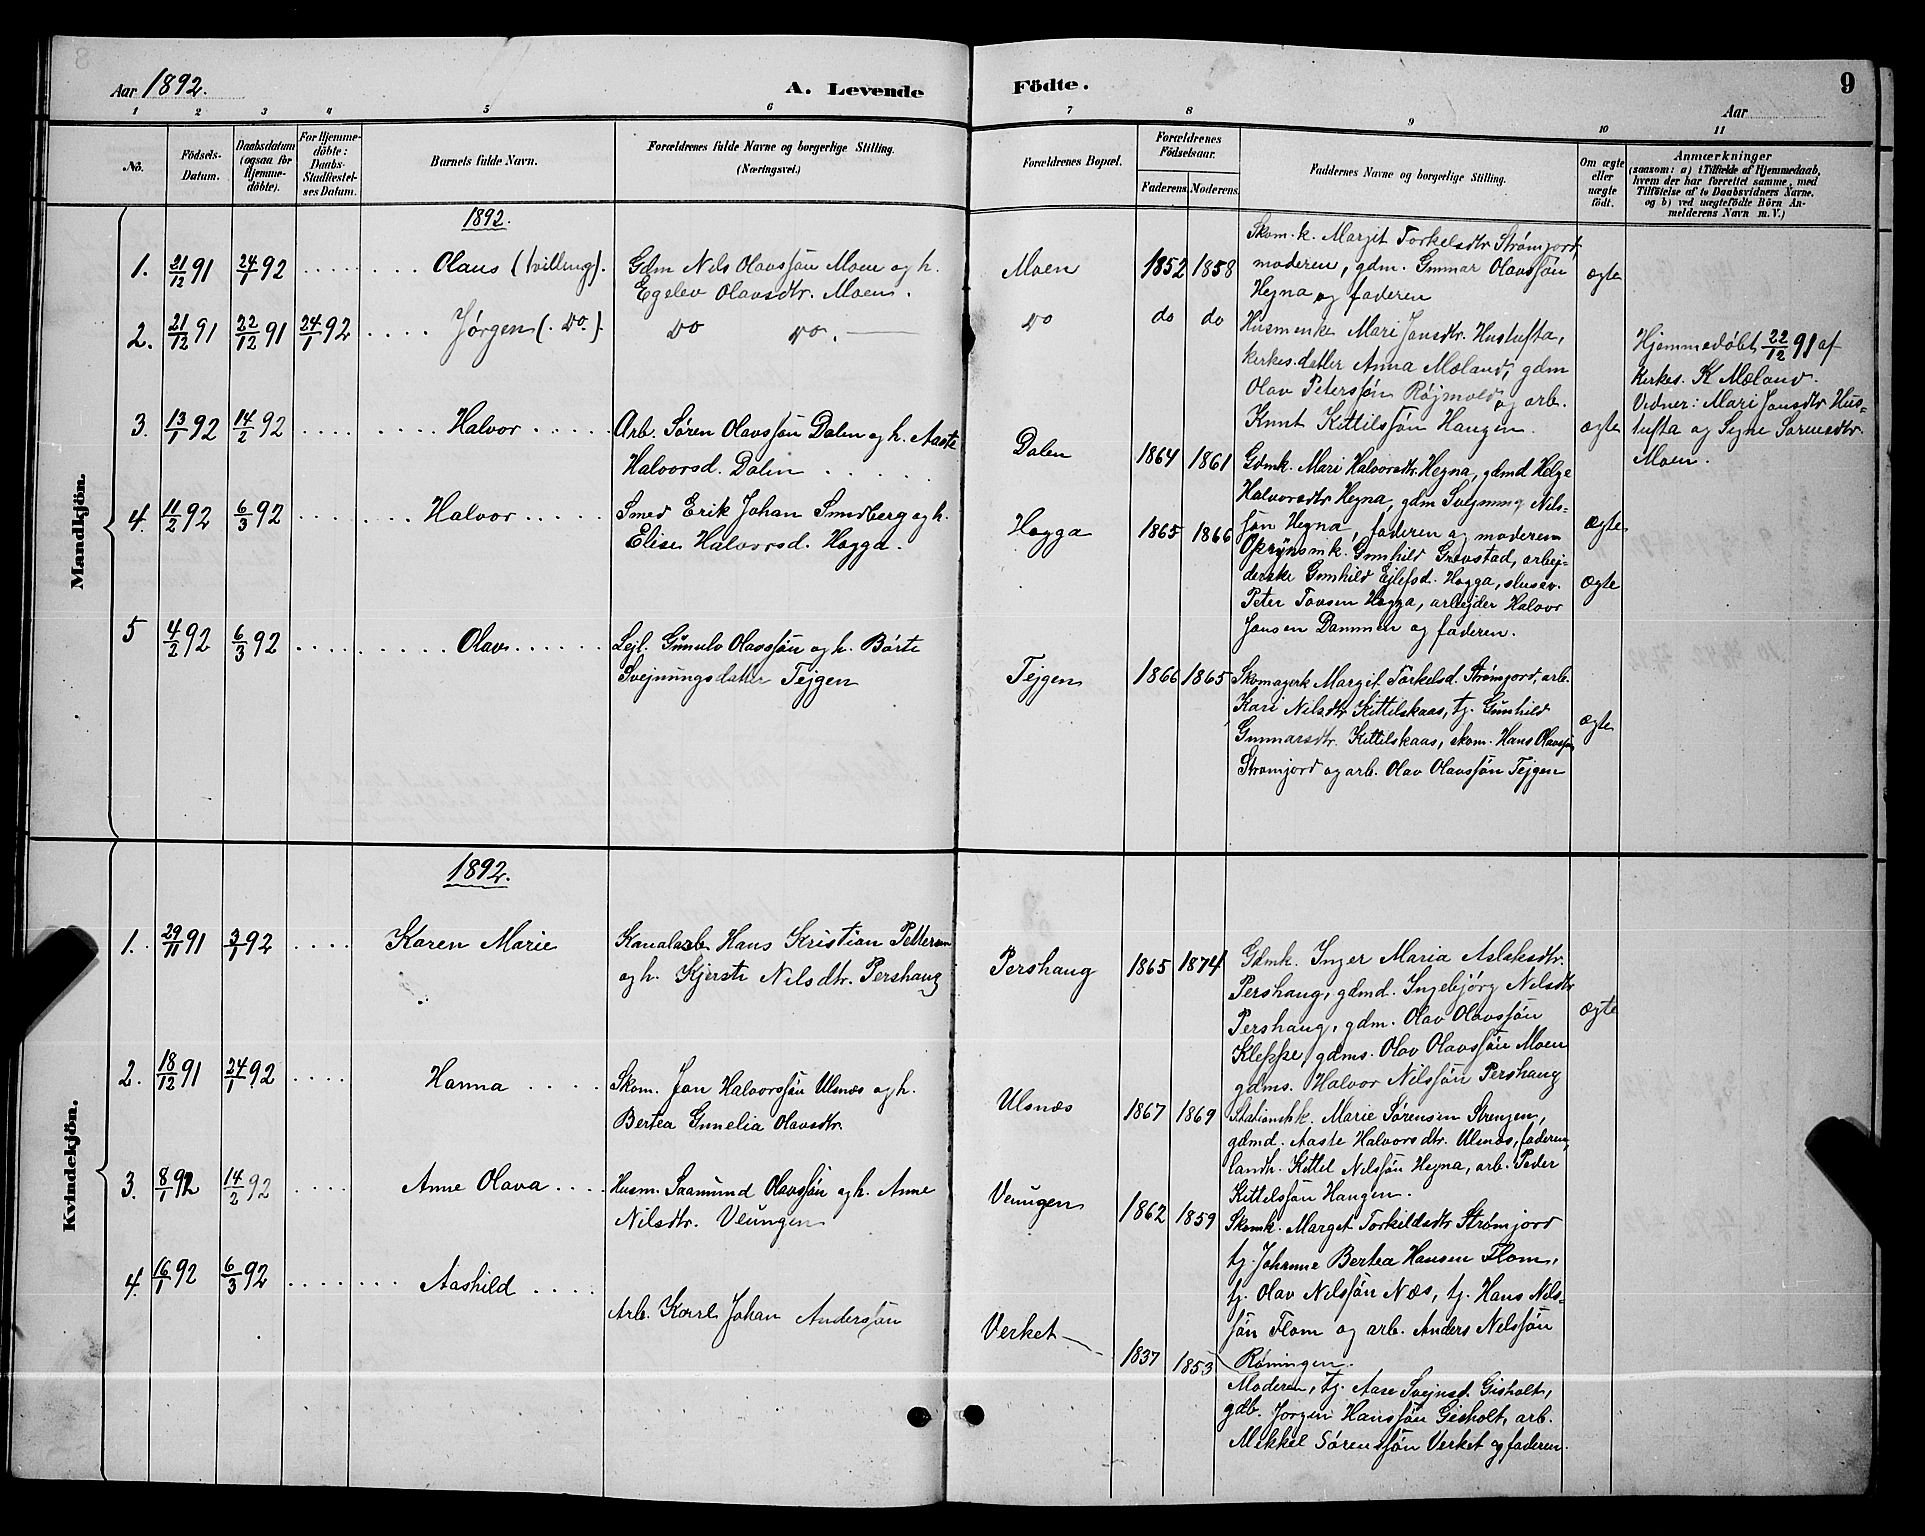 Aar 1892.
A. Levende
Födte.
9
Aar
1 2 3 4 5 6 7 8 9 10 11
No.
Födsels-
Datum.
Daabsdatum
(ogsaa for
Hjemme-
döbte).
For Hjemme-
döbte:
Daabs-
Stadfæstel-
ses Datum.
Barnets fulde Navn.
Forældrenes fulde Navne og borgerlige Stilling.
(Næringsvei.)
Forældrenes Bopæl.
Forældrenes
Födselsaar.
Faderens. Moderens.
Faddernes Navne og borgerlige Stilling.
Om ægte
eller
uægte
födt.
Anmærkninger
(saasom: a) i Tilfælde af Hjemmedaab,
hvem der har forrettet samme, med
Tilföielse af to Daabsvidners Navne.
og b) ved uægtefödte Börn An-
melderens Navn m. V.)
Mandkjön.
1892.
1. 21/12 91 24/1 92 Olaus (tvilling).
Gdm Nils Olavssøn Moen og h.
Egelev Olavsdtr. Moen.
Moen 1852 1858
Skom.k. Margit Torkelsdtr Strømjord,
moderen, gdm. Gunnar Olavssøn
Hegna og faderen
ægte
2. 21/12 91 22/12 91 24/1 92 Jørgen (. Do.)
Do Do.
Do do do
Husmenk. Mari Jansdtr. Hustufta,
kerkes.datter Anna Mæland, gdm
Olav Peterssøn Røjmold og arb.
Knut Kittilssøn Haugen.
ægte
Hjemmedøbt 22/12 91 af
Kerkes. K Mæland.
Vidner: Mari Jansdtr Hus-
tufta og Signe Sørensdtr.
Moen.
3. 13/1 92 14/2 92 Halvor
Arb. Søren Olavssøn Dalen og h. Aaste
Halvorsd. Dalen
Dalen 1864 1861
Gdmk. Mari Halvorsdtr. Hegna, gdmd Helge
Halvorsdtr Hegna, gdm Svejnung Nils-
søn Hegna, faderen og moderen
ægte
4. 11/2 92 6/3 92 Halvor
Smed Erik Johan Sundberg og h.
Elise Halvorsd. Hogga.
Hogga 1865 1866
Opsynsmk. Gunhild Grovstad, arbej-
derske Gunhild Ejlefsd. Hogga, slusev.
Peter Tovsen Hogga, arbejder Halvor
Jansen Dammen og faderen.
ægte
5 4/2 92 6/3 92 Olav
Lejl. Gunulv Olavssøn og h. Børte
Svejnungsdatter Tejgen
Tejgen 1866 1865
Skomagerk Margit Torkelsd. Strømjord, arb.
Kari Nilsdtr Kittilskaas, tj. Gunhild
Gunnarsdtr. Kittilskaas, skom. Hans Olavssøn
Strømjord og arb. Olav Olavssøn Tejgen
ægte
Kvindekjön.
1892.
1. 29/11 91 3/1 92 Karen Marie
Kanalarb Hans Kristian Pettersen
og h. Kjersti Nilsdtr. Pershaug
Pershaug 1865 1874
Gdmk. Inger Maria Aslaksdtr.
Pershaug, gdmd. Ingebjørg Nilsdtr
Pershaug, gdm. Olav Olavssøn
Kleppe, gdms. Olav Olavssøn Moen
gdms. Halvor Nilssøn Pershaug
ægte
2. 18/12 91 24/1 92 Hanna
Skom. Jan Halvorssøn Ulsnæs og h.
Bertea Gunelia Olavsdtr.
Ulsnæs 1867 1869
Stationshk. Marie Sørensen Strengen,
gdmd. Aaste Halvorsdtr. Ulsnæs, faderen,
landh. Kittel Nilssøn Hegna, arb. Peder
Kittelssøn Haugen.
3. 8/1 92 14/2 92 Anne Olava
Husm. Saamund Olavssøn og h. Anne
Nilsdtr. Veungen
Veungen 1862 1859
Skomk. Marget Torkildsdtr Strømjord
tj. Johanne Bertea Hansen Flom,
tj. Olav Nilssøn Næs, tj. Hans Nils-
søn Flom og arb. Anders Nilssøn
Røningen.
4. 16/1 92 6/3 92 Aashild
Arb. Karl Johan Anderssøn
Verket 1837 1853
Moderen, tj. Aase Svejnsd. Gisholt,
gdb. Jørgen Hanssøn Gisholt, arb.
Mekkel Sørenssøn Verket og faderen.